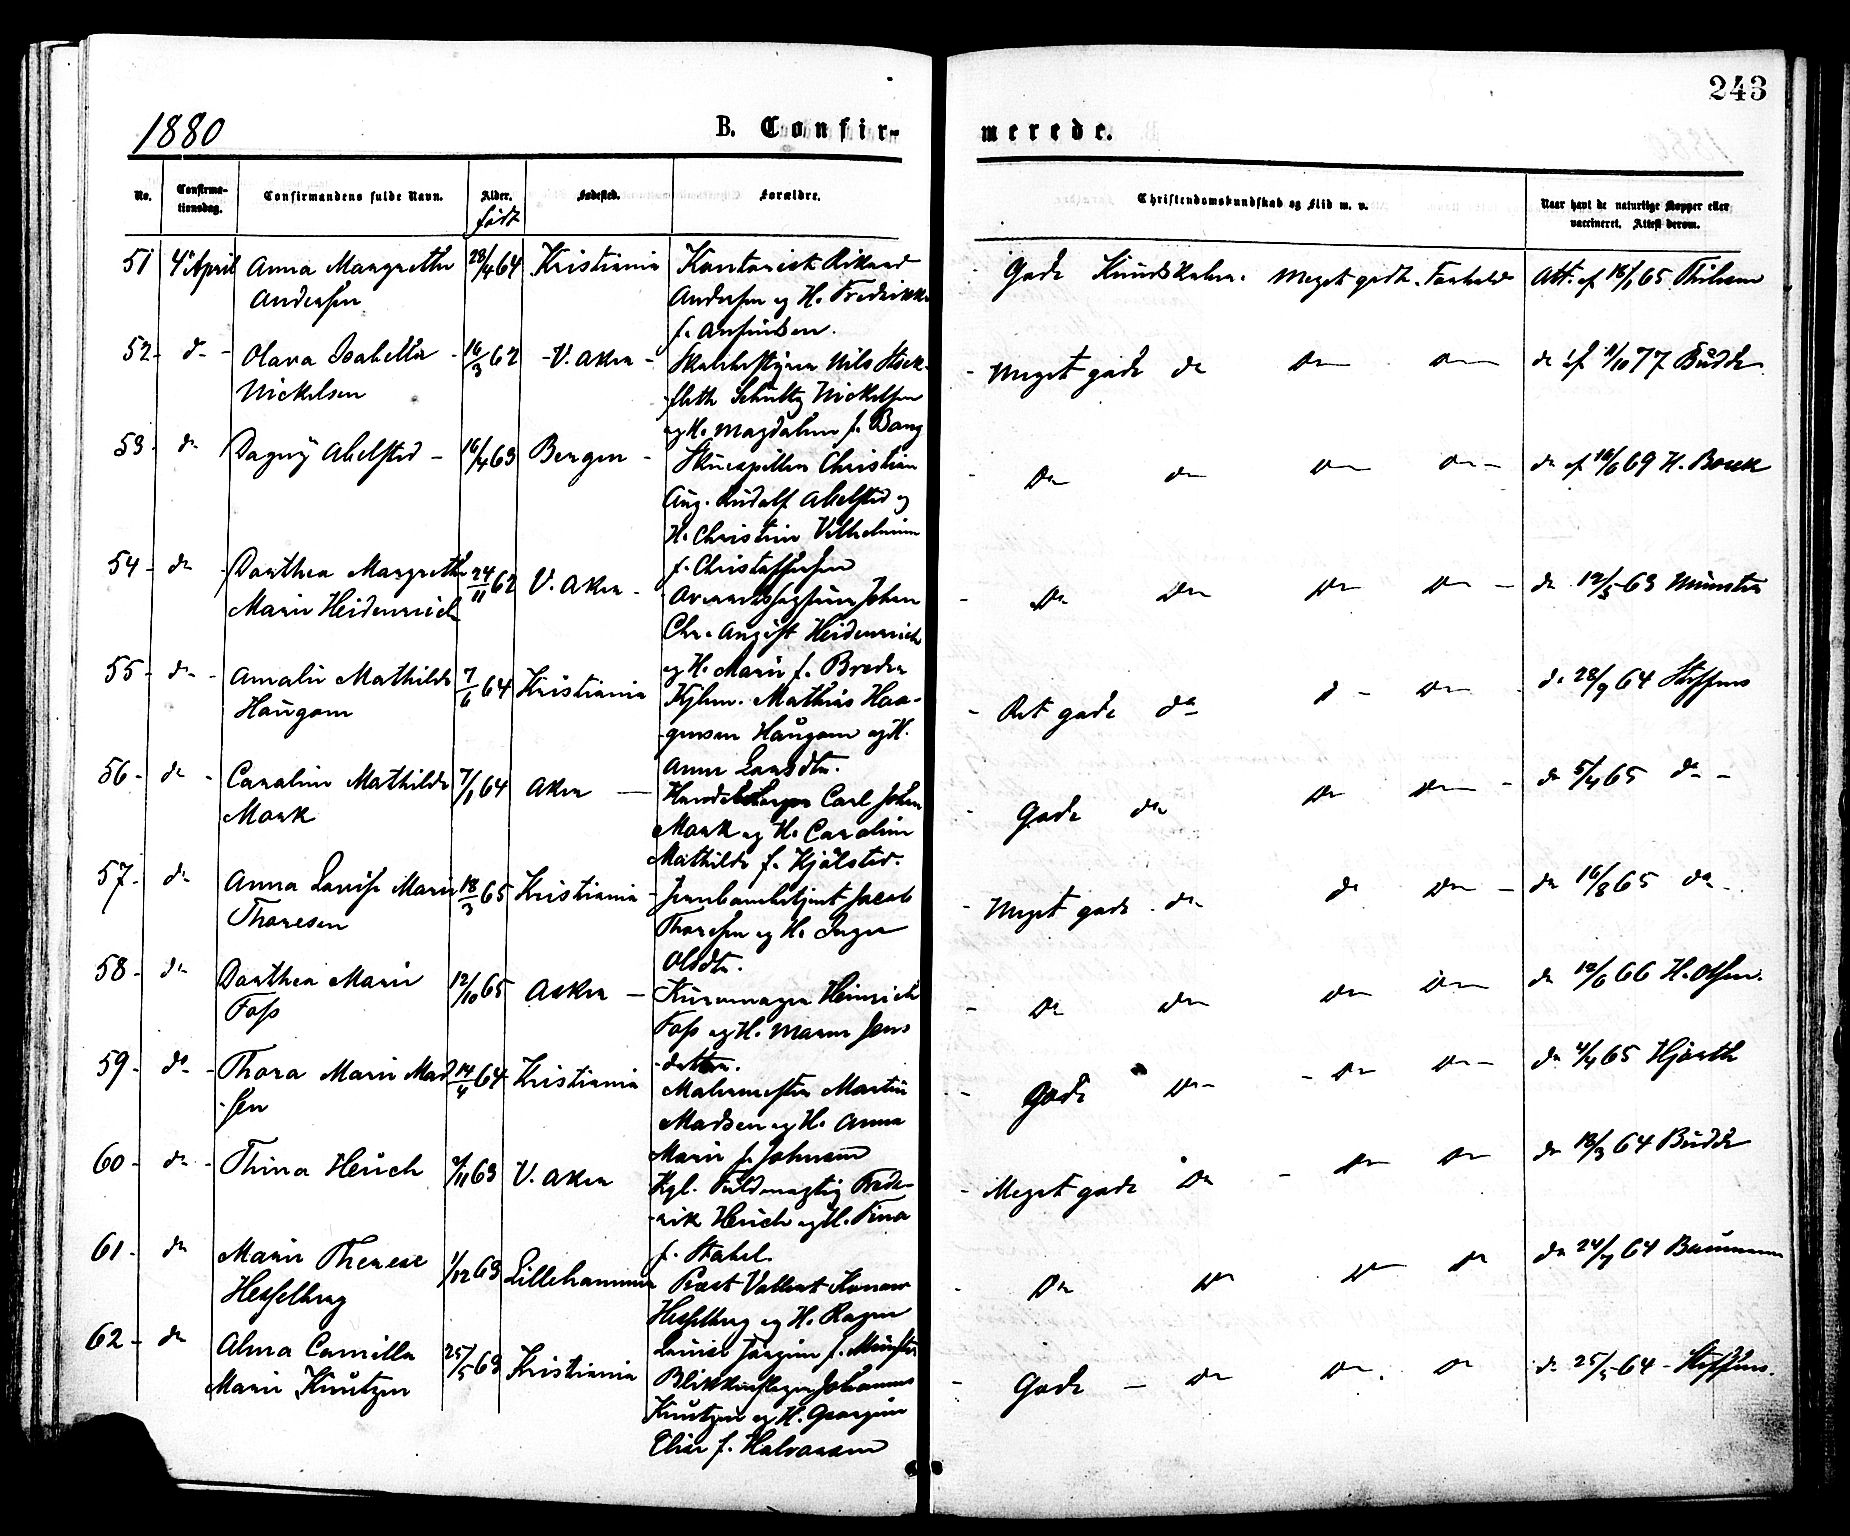 243
1880
B. Confir-
merede.
No.
Confirma-
tionsdag.
Confirmandens fulde Navn.
Alder.
født
Fødested.
Forældre.
Christendomskundskab og Flid m. v.
Naar havt de naturlige Kopper eller
vaccineret. Attest derom.
51 4' April Anna Margrethe 28/4 64 Kristiania Kontorist Rikard
Andersen Andersen og H. Fredrikke
f. Arfindsen.
Gode Kundskaber. Meget godt Forhold Att. af 18/1 65
52 - d - Olava Isabella 16/3 62 - V. Aker - Skolebestyrer Nils Stock-
Nickelsen fleth Schultz Nickelsen
og H. Magdalene f. Bang
Meget gode do do do do af 11/10 77 Budde
53 do Dagny Abelsted - 16/4 63 Bergen - Skuespiller Christian
Aug. Rudolf Abelsted og
H. Christine Vilhelmine
f. Christoffersen
Do do do do - do af 18/6 69 H. Bock
54 - do Dorthea Margrethe 24/11 62 V. Aker -
Marie Heidenreich Johan
Chr. August Heidenreich
og H. Marie f. Breder
Do Do Do Do - do 12/5 63 Münster
55 - do - Amalie Mathilde 7/6 64 Kristiania Kjbm. Mathias Haa-
Haugom gensen Haugom og H.
Anne Larsdtr.
- Ret gode do d - do d. 28/9 64 Steffens
56 - do - Caroline Mathilde 7/1 64 Aker - Carl Johan
Mork Mork og H. Caroline
Mathilde f. Kjølsted.
Gode do do do - do 5/4 65 do -
57 - do Anna Lovise Marie 18/3 65 Kristiania - Jernbanebetjent Jacob
Thoresen Thoresen og H. Inger
Olsdtr.
- Meget gode do do do - do 16/8 65 do -
58 - do Dorthea Marie 12/10 65 Asker - Heinrich
Foss Foss og H. Maren Jens
- datter.
- Do do do do do 12/6 66 H. Olsen.
59 - do - Thora Marie Mad 14/4 64 Kristiania Malermester Martin
- sen Madsen og H. Anna
Marie f. Johnsen
- Gode do - - do do - do 4/4 65 Hjorth
60 - do - Thina Heuch 2/11 63 V. Aker Kgl. Fuldmægtig Frede-
- rik Heuch og H. Tina
f. Stabel.
- Meget gode Do - do do do 18/3 64 Budde
61 - do Marie Therese 1/12 63 Lillehammer Præst Vollert Konow
Hesselberg Hesselberg og H. Ragna
Louise Jørgine f. Münster
- Do do do do do 24/7 64
62 - do Alma Camilla 25/5 63 Kristiania Blikkenslager Johannes
Marie Knutzen Knutzen og H. Georgine
Elise f. Halvorsen
- Gode - do do. do do 25/5 64 - Steffens.